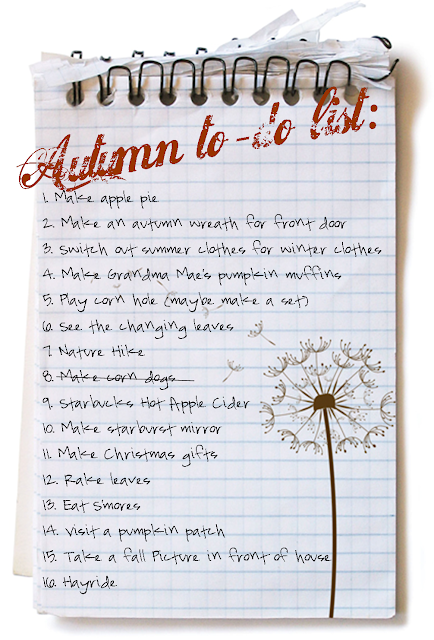 Autumn to-do list:
1. Make apple pie
2. Make an autumn wreath for front door
3. Switch out summer clothes for winter clothes
4. Make Grandma Mae's pumpkin muffins
5. Play corn hole (maybe make a set)
6. See the changing leaves
7. Nature Hike
8. Make corn dogs
9. Starbucks Hot Apple Cider
10. Make starburst mirror
11. Make Christmas gifts
12. Rake leaves
13. Eat S'mores
14. Visit a pumpkin patch
15. Take a fall Picture in front of house
16. Hayride